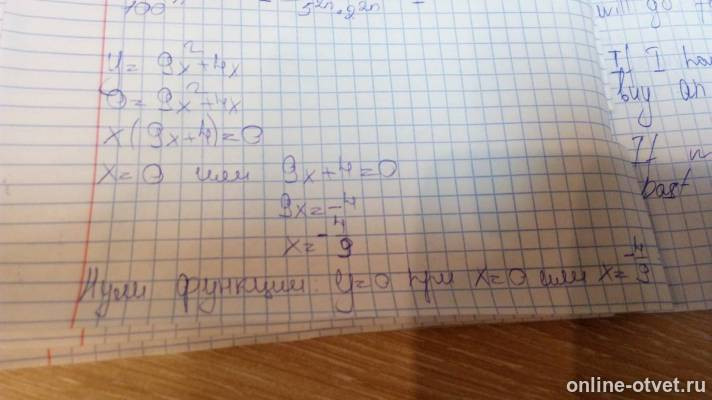 100
5²ⁿ·2²ⁿ
y = 9x²+4x
0 = 9x²+4x
x(9x+4)=0
x=0 или 9x+4=0
9x=-4
x=-4/9
Нули функции: y=0 при x=0 или x=-4/9
will go
If I
buy an
If
online-otvet.ru